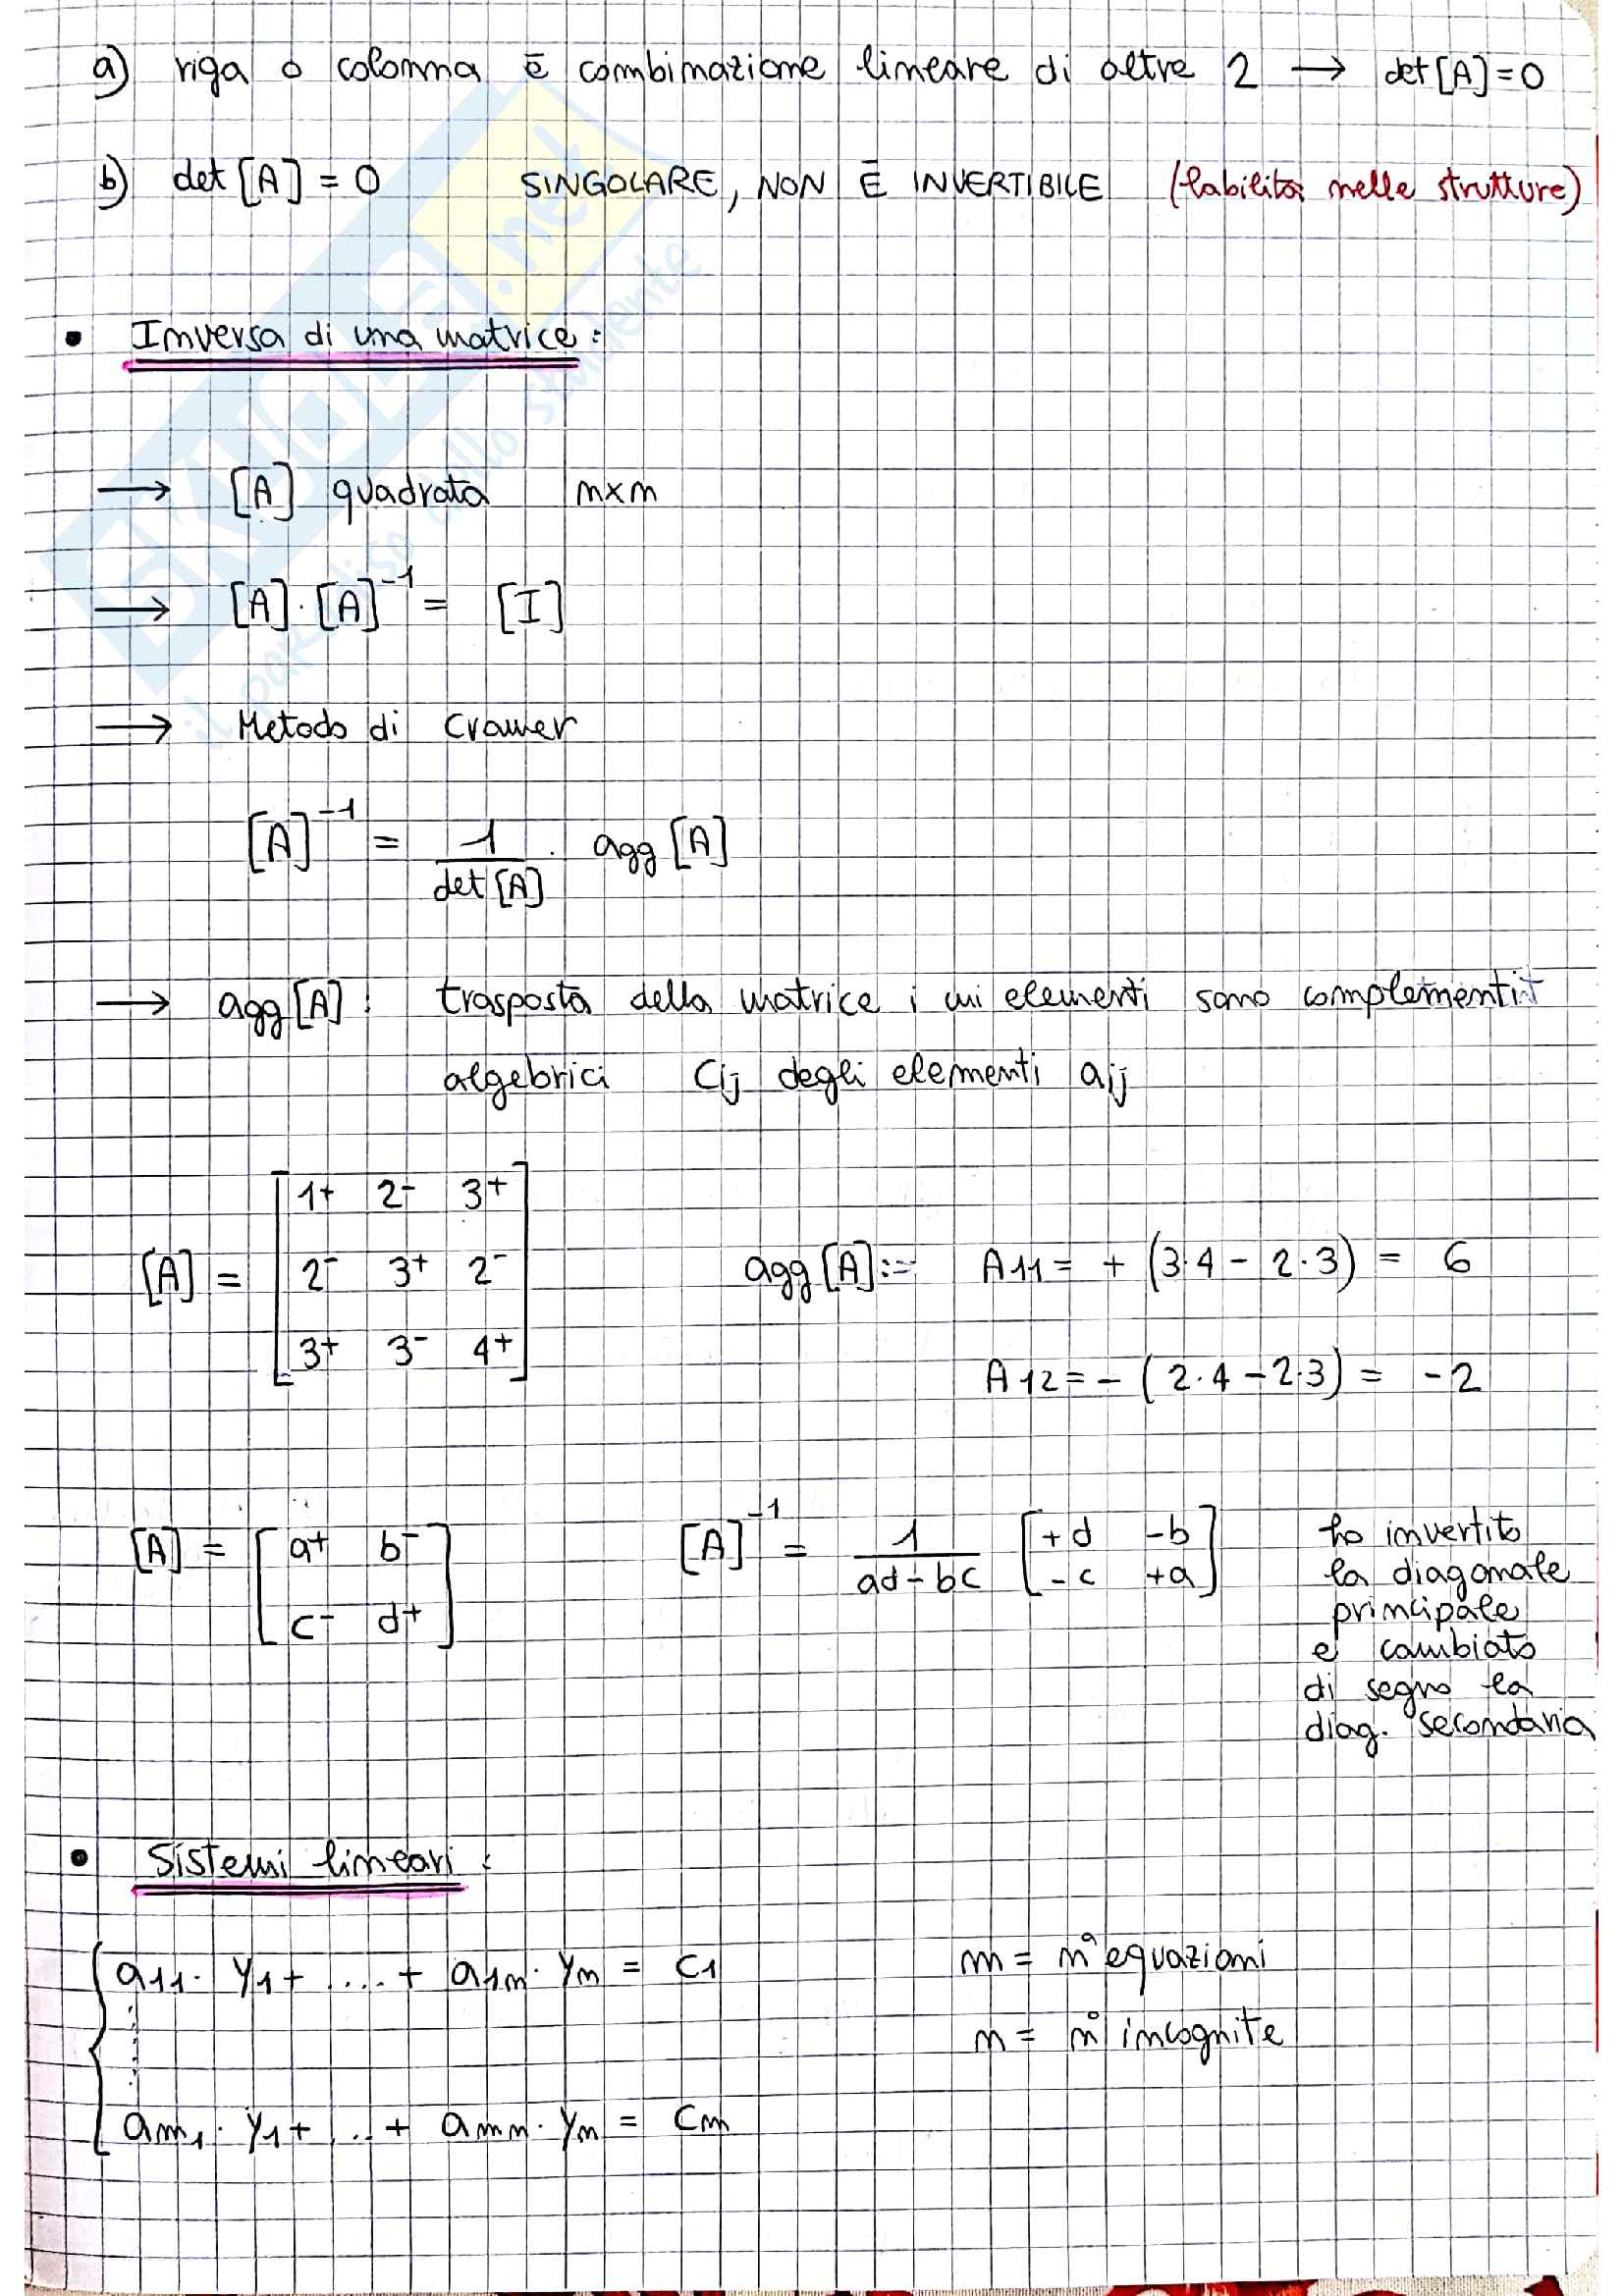 a) riga o colonna è combinazione lineare di altre 2 → det [A] = 0
b) det [A] = 0 SINGOLARE, NON È INVERTIBILE (labilità nelle strutture)
• Inversa di una matrice:
→ [A] quadrata n×n
→ [A] · [A]⁻¹ = [I]
→ Metodo di Cramer
[A]⁻¹ = 1/det [A] · agg [A]
→ agg [A]: trasposta della matrice i cui elementi sono complementi
algebrici Cij degli elementi aij
[A] = [1+ 2- 3+
2- 3+ 2-
3+ 3- 4+]
agg [A] := A11 = + (3·4 - 2·3) = 6
A12 = - (2·4 - 2·3) = -2
[A] = [a+ b-
c- d+]
[A]⁻¹ = 1/(ad - bc) [+d -b
-c +a]
ho invertito
la diagonale
principale
e cambiato
di segno la
diag. secondaria
• Sistemi lineari:
a11 · y1 + .... + a1n · yn = c1
am1 · y1 + ... + amn · yn = cm
m = n° equazioni
n = n° incognite
SKUOLA.net
il paradiso dello studente